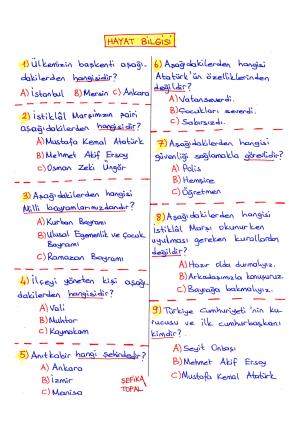 HAYAT BİLGİSİ
1) Ülkemizin başkenti aşağı-
dakilerden hangisidir?
A) İstanbul B) Mersin C) Ankara
2) İstiklâl Marşımızın şairi
aşağıdakilerden hangisidir?
A) Mustafa Kemal Atatürk
B) Mehmet Akif Ersoy
C) Osman Zeki Üngör
3) Aşağıdakilerden hangisi
Milli bayramlarımızdandır?
A) Kurban Bayramı
B) Ulusal Egemenlik ve Çocuk
Bayramı
C) Ramazan Bayramı
4) İlçeyi yöneten kişi aşağı-
dakilerden hangisidir?
A) Vali
B) Muhtar
C) Kaymakam
5) Anıtkabir hangi şehirdedir?
A) Ankara
B) İzmir
C) Manisa
SEFİKA
TOPAL
6) Aşağıdakilerden hangisi
Atatürk'ün özelliklerinden
değildir?
A) Vatanseverdi.
B) Çocukları severdi.
C) Sabırsızdı.
7) Aşağıdakilerden hangisi
güvenliği sağlamakla görevlidir?
A) Polis
B) Hemşire
C) Öğretmen
8) Aşağıdakilerden hangisi
İstiklâl Marşı okunurken
uyulması gereken kurallardan
değildir?
A) Hazır olda durmalıyız.
B) Arkadaşımızla konuşuruz.
C) Bayrağa bakmalıyız.
9) Türkiye Cumhuriyeti'nin ku-
rucusu ve ilk cumhurbaşkanı
kimdir?
A) Seyit Onbaşı
B) Mehmet Akif Ersoy
C) Mustafa Kemal Atatürk